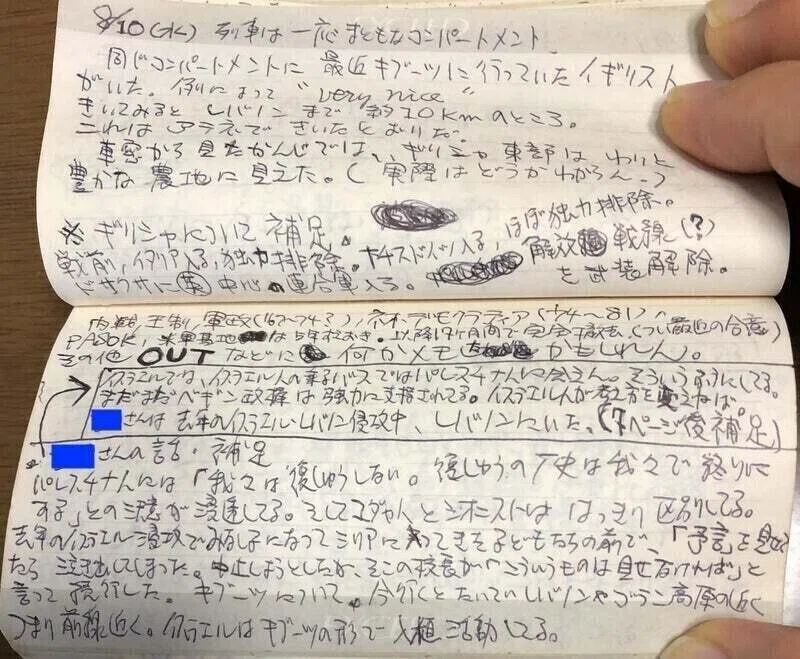 8/10(水) 列車は一応まともなコンパートメント
同じコンパートメントに 最近キブーツに行っていたイギリス人
がいた。例によって "very nice"
きいてみると レバノンまで 約10kmのところ。
これは アテネで きいたとおりだ。
車窓から見たかんじでは、ギリシャ東部は わりと
豊かな農地に見えた。(実際はどうかわからん。)
※ギリシャについて補足。
戦前、イタリア入る、独力排除。ナチスドイツ入る、ほぼ独力排除。
どさくさに 英 中心の連合軍入る。 解放戦線(?)
を武装解除。
内戦、王制、軍政('67〜74?)、ネオデモクラティア('74〜81)、
PASOK、米軍基地は5年おき。以降17ヶ月間で完全撤去(つい最近の合意)
その他 OUT などに 何かメモ かもしれん)。
イスラエルでは、イスラエル人の乗るバスではパレスチナ人に会えん。そういうふうにしてる。
まだまだベギン政権は強力に支持されてる。イスラエル人が考え方を変えねば。
さんは 去年のイスラエル・レバノン侵攻中、レバノンにいた。(7ページ後補足)
さんの話・補足
パレスチナ人には「我々は復しゅうしない。復しゅうの歴史は我々で終りに
する」との意が浸透してる。そしてユダヤ人とシオニストは はっきり区別してる。
去年のイスラエル侵攻でみなし子になってシリアに入ってきた子どもたちの前で、「予言」を見せ
たら 泣き出してしまった。中止しようとしたが、そこの校長が「こういうものは見せなければ」と
言って続行した。キブーツについて、今行くとたいていレバノンやゴラン高原の近く
つまり前線近く。イスラエルはキブーツの形で入植活動してる。